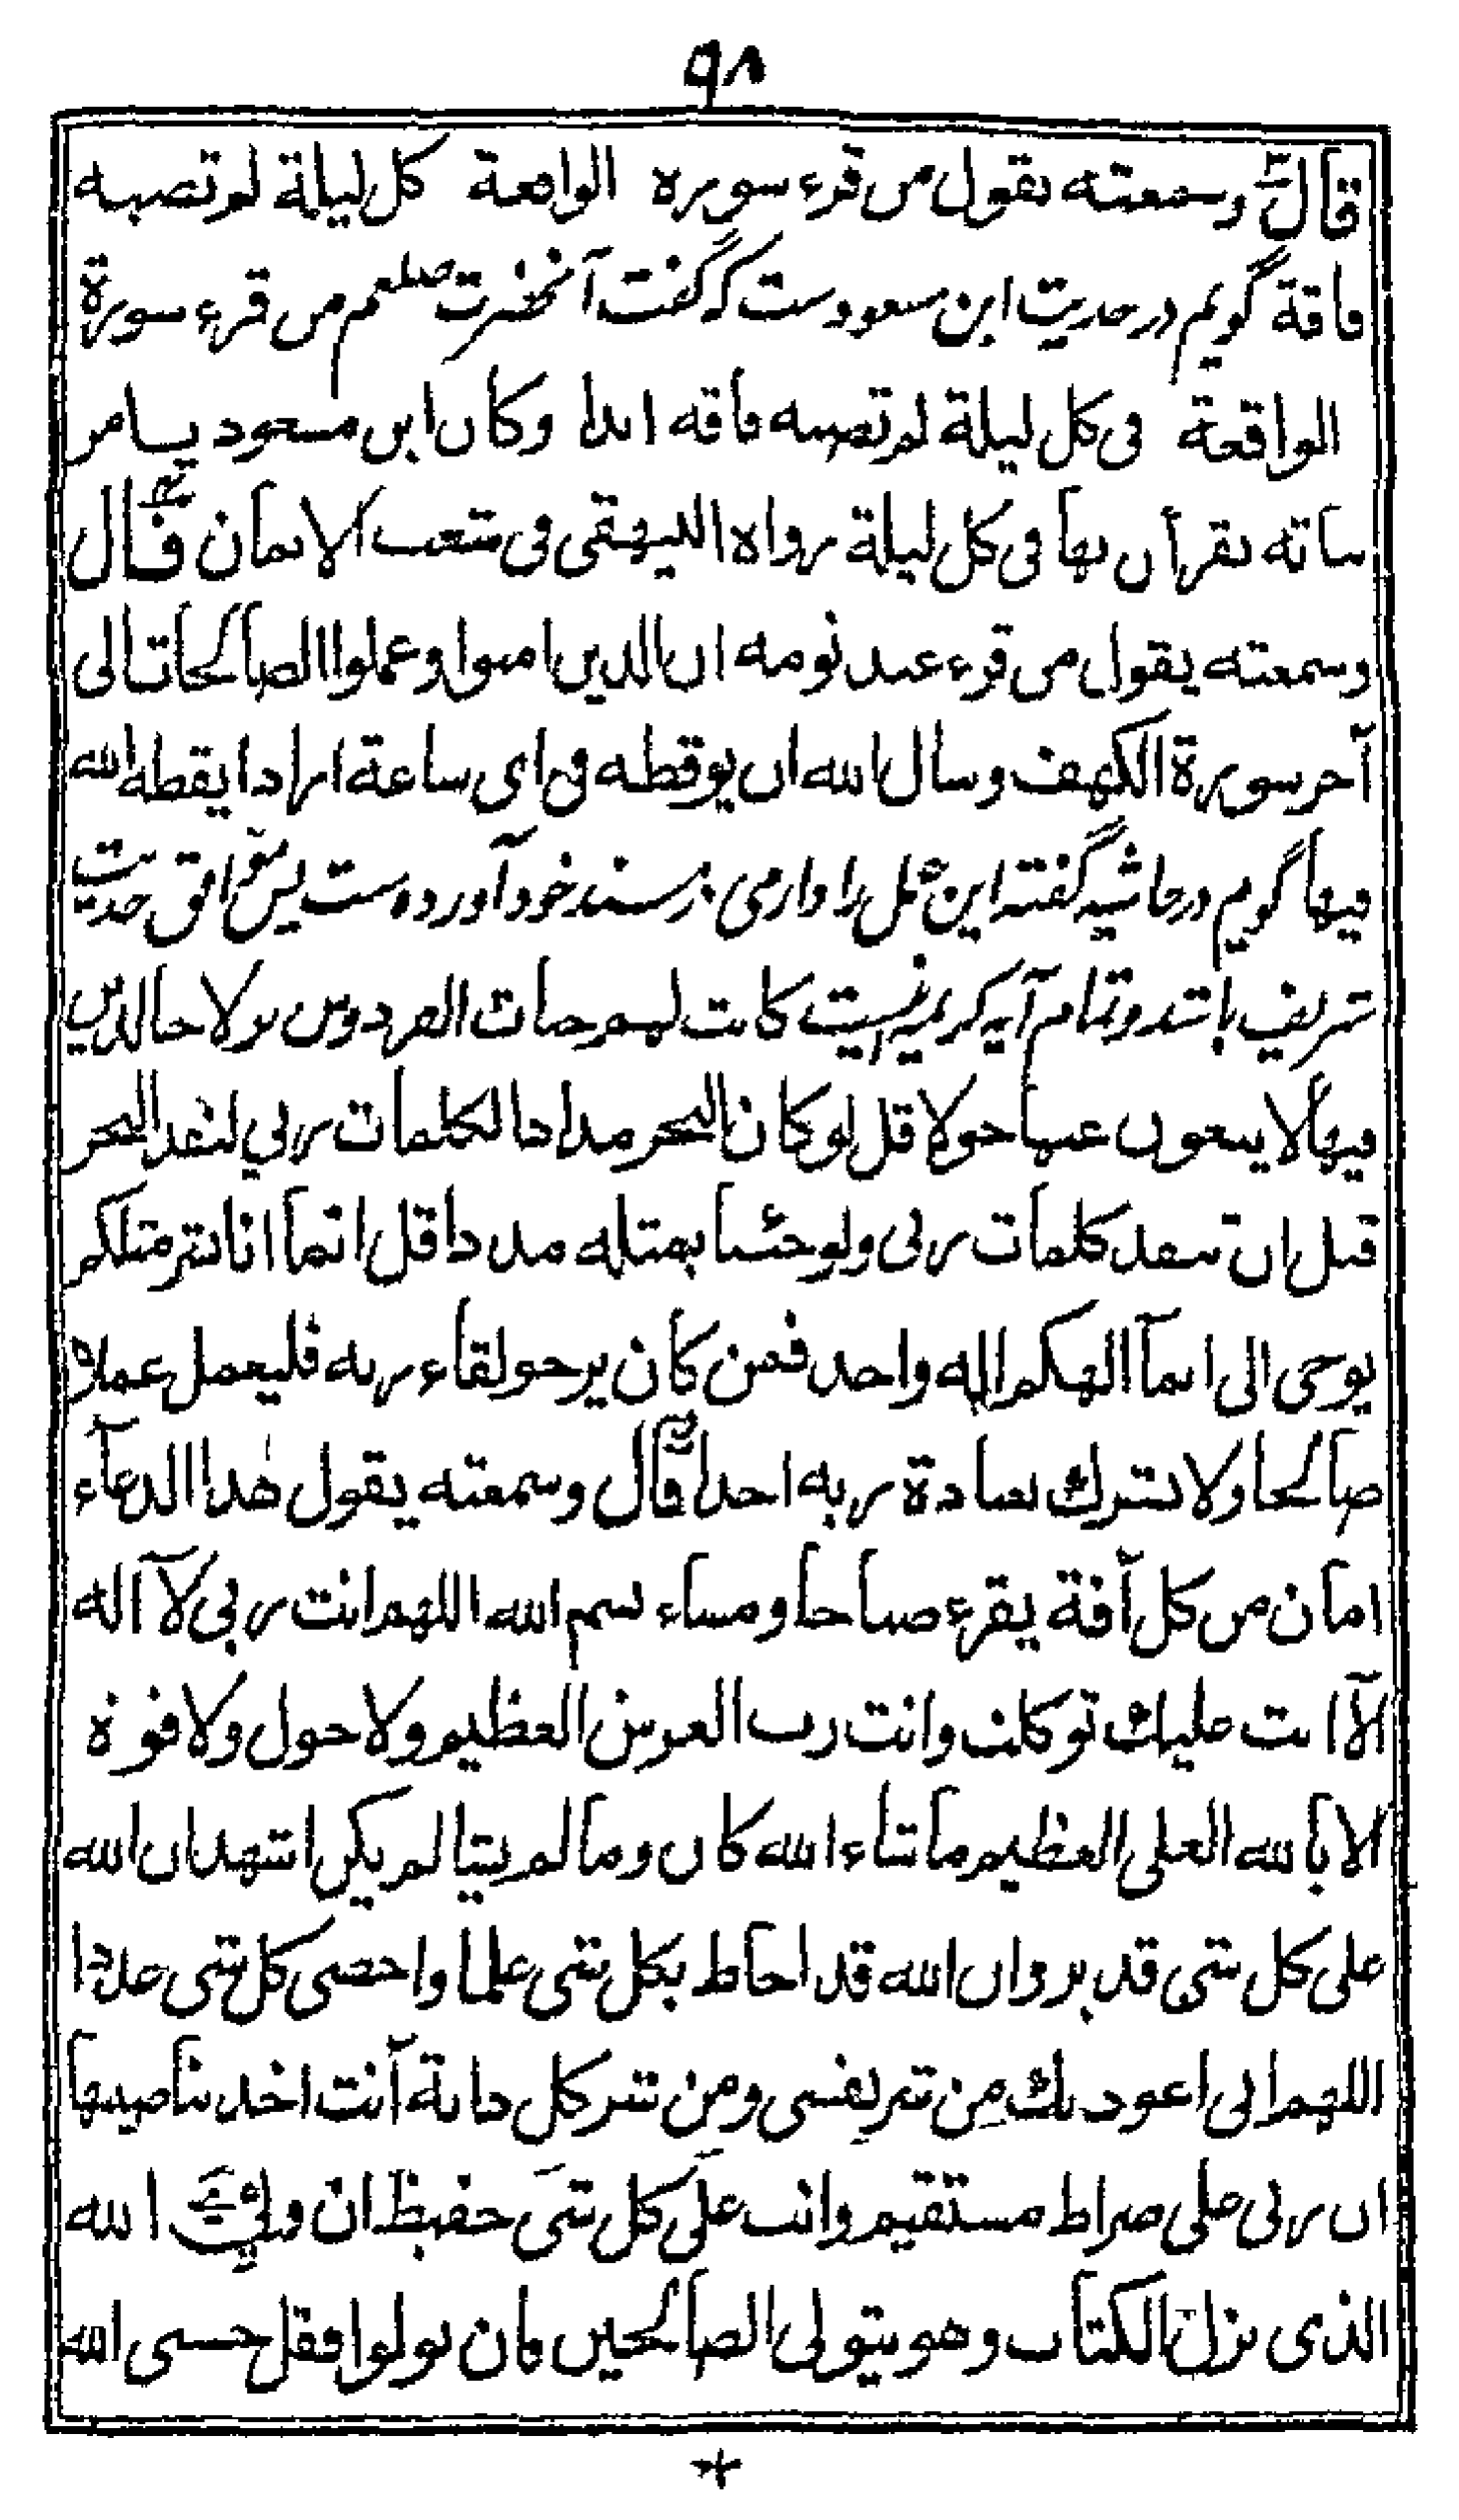 ٩٨
قال وسمعته يقول من قرء سورة الواقعة كل ليلة لم تصبه
فاقة گویم در حدیث ابن مسعودست که گفت آنحضرت صلعم من قرء سورة
الواقعة فى كل ليلة لم تصبه فاقه ابدا وكان ابن مسعود يامر
بناته يقرأن بها فى كل ليلة رواه البيهقى فى شعب الايمان قال
وسمعته يقول من قرء عند نومه ان الذين امنوا وعملوا الصالحات الى
آخر سورة الكهف وسال الله ان يوقظه فى اى ساعة اراد ايقظه الله
فيها گویم در حاشیه گفته این عمل را دارمی در مسند خود آورده ست پس موافق حدیث
شریف باشد و تمام آیه کریمه اینست كانت لهم جنات الفردوس نزلا خالدين
فيها لا يبغون عنها حولا قل لو كان البحر مدادا لكلمات ربي لنفد البحر
قبل ان تنفد كلمات ربى ولو جئنا بمثله مددا قل انما انا بشر مثلكم
يوحى الى انما الهكم اله واحد فمن كان يرجو لقاء ربه فليعمل عملا
صالحا ولا يشرك بعبادة ربه احدا قال وسمعته يقول هذا الدعاء
امان من كل آفة يقرء صباحا ومساء بسم الله اللهم انت ربى لآ اله
الآ انت عليك توكلت وانت رب العرش العظيم ولا حول ولا قوة
الا بالله العلى العظيم ما شاء الله كان وما لم يشا لم يكن اشهد ان الله
على كل شى قدير وان الله قد احاط بكل شى علما واحصى كل شى عددا
اللهم انى اعوذ بك من شر نفسى ومن شر كل دابة أنت اخذ بناصيتها
ان ربى على صراط مستقيم وانت على كل شى حفيظ ان ولي الله
الذى نزل الكتاب وهو يتولى الصالحين فان تولوا فقل حسبى الله